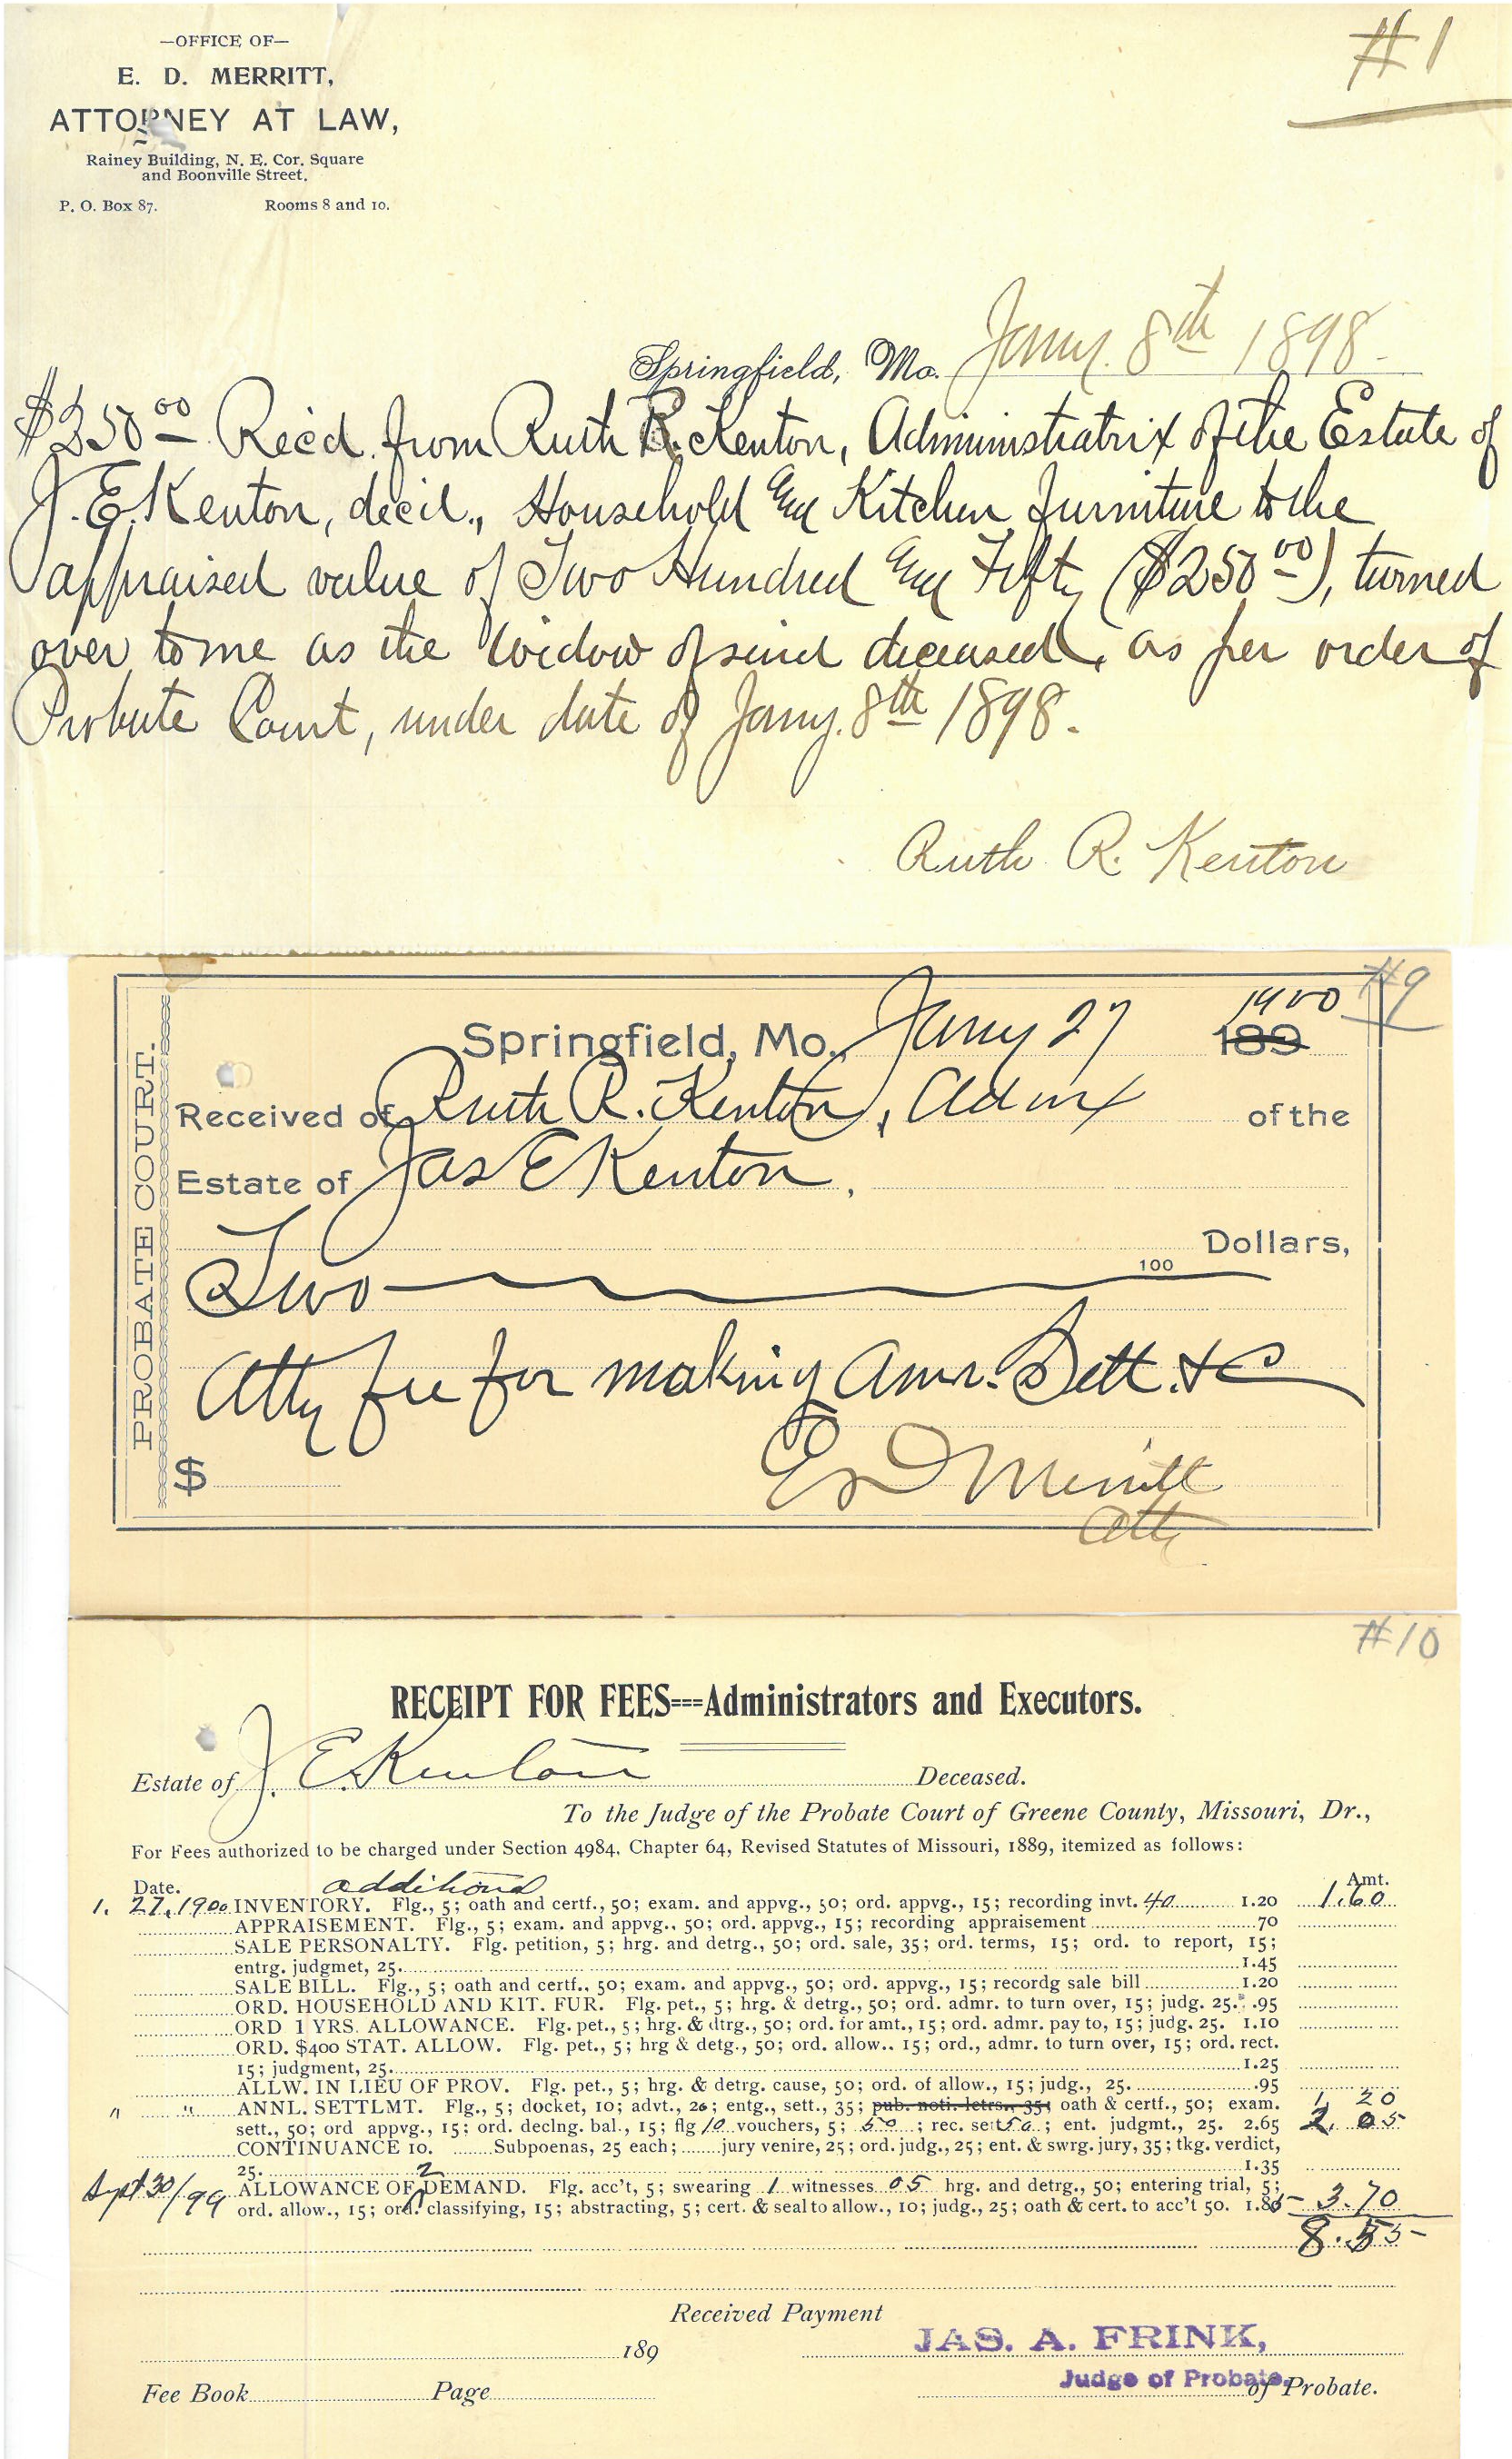 #1
—OFFICE OF—
E. D. MERRITT,
ATTORNEY AT LAW,
Rainey Building, N. E. Cor. Square
and Boonville Street.
P. O. Box 87. Rooms 8 and 10.
Springfield, Mo. Jany. 8th 1898.
$250 00 Rec'd. from Ruth R. Kenton, Administratrix of the Estate of
J. E. Kenton, dec'd., Household and Kitchen furniture to the
appraised value of Two Hundred and Fifty ($250 00), turned
over to me as the widow of said deceased, as per order of
Probate Court, under date of Jany. 8th 1898.
Ruth R. Kenton
#9
PROBATE COURT.
Springfield, Mo., Jany 27 1900 189
Received of Ruth R. Kenton, Admx of the
Estate of Jas E Kenton.
100 Dollars,
Two
Atty fee for making Ann. Sett. &C
$
E D Merritt
Atty
#10
RECEIPT FOR FEES---Administrators and Executors.
Estate of J. E. Kenton Deceased.
To the Judge of the Probate Court of Greene County, Missouri, Dr.,
For Fees authorized to be charged under Section 4984, Chapter 64, Revised Statutes of Missouri, 1889, itemized as follows:
Date. additional Amt.
1. 27. 1900 INVENTORY. Flg., 5; oath and certf., 50; exam. and appvg., 50; ord. appvg., 15; recording invt. 40 1.20 1.60
APPRAISEMENT. Flg., 5; exam. and appvg., 50; ord. appvg., 15; recording appraisement .70
SALE PERSONALTY. Flg. petition, 5; hrg. and detrg., 50; ord. sale, 35; ord. terms, 15; ord. to report, 15;
entrg. judgmet, 25. 1.45
SALE BILL. Flg., 5; oath and certf., 50; exam. and appvg., 50; ord. appvg., 15; recordg sale bill 1.20
ORD. HOUSEHOLD AND KIT. FUR. Flg. pet., 5; hrg. & detrg., 50; ord. admr. to turn over, 15; judg. 25. .95
ORD 1 YRS. ALLOWANCE. Flg. pet., 5; hrg. & dtrg., 50; ord. for amt., 15; ord. admr. pay to, 15; judg. 25. 1.10
ORD. $400 STAT. ALLOW. Flg. pet., 5; hrg & detg., 50; ord. allow.. 15; ord., admr. to turn over, 15; ord. rect.
15; judgment, 25. 1.25
ALLW. IN LIEU OF PROV. Flg. pet., 5; hrg. & detrg. cause, 50; ord. of allow., 15; judg., 25. .95
" " ANNL. SETTLMT. Flg., 5; docket, 10; advt., 20; entg., sett., 35; pub. noti. letrs., 35; oath & certf., 50; exam. 1, 20
sett., 50; ord appvg., 15; ord. declng. bal., 15; flg 10 vouchers, 5; 50; rec. sett 50; ent. judgmt., 25. 2.65 2. 05
CONTINUANCE 10. Subpoenas, 25 each; jury venire, 25; ord. judg., 25; ent. & swrg. jury, 35; tkg. verdict,
25. 1.35
2
Sept 30/99 ALLOWANCE OF DEMAND. Flg. acc't, 5; swearing 1 witnesses 05 hrg. and detrg., 50; entering trial, 5;
ord. allow., 15; ord. classifying, 15; abstracting, 5; cert. & seal to allow., 10; judg., 25; oath & cert. to acc't 50. 1.85 3.70
8.55
Received Payment
189 JAS. A. FRINK,
Judge of Probate.
Fee Book Page of Probate.